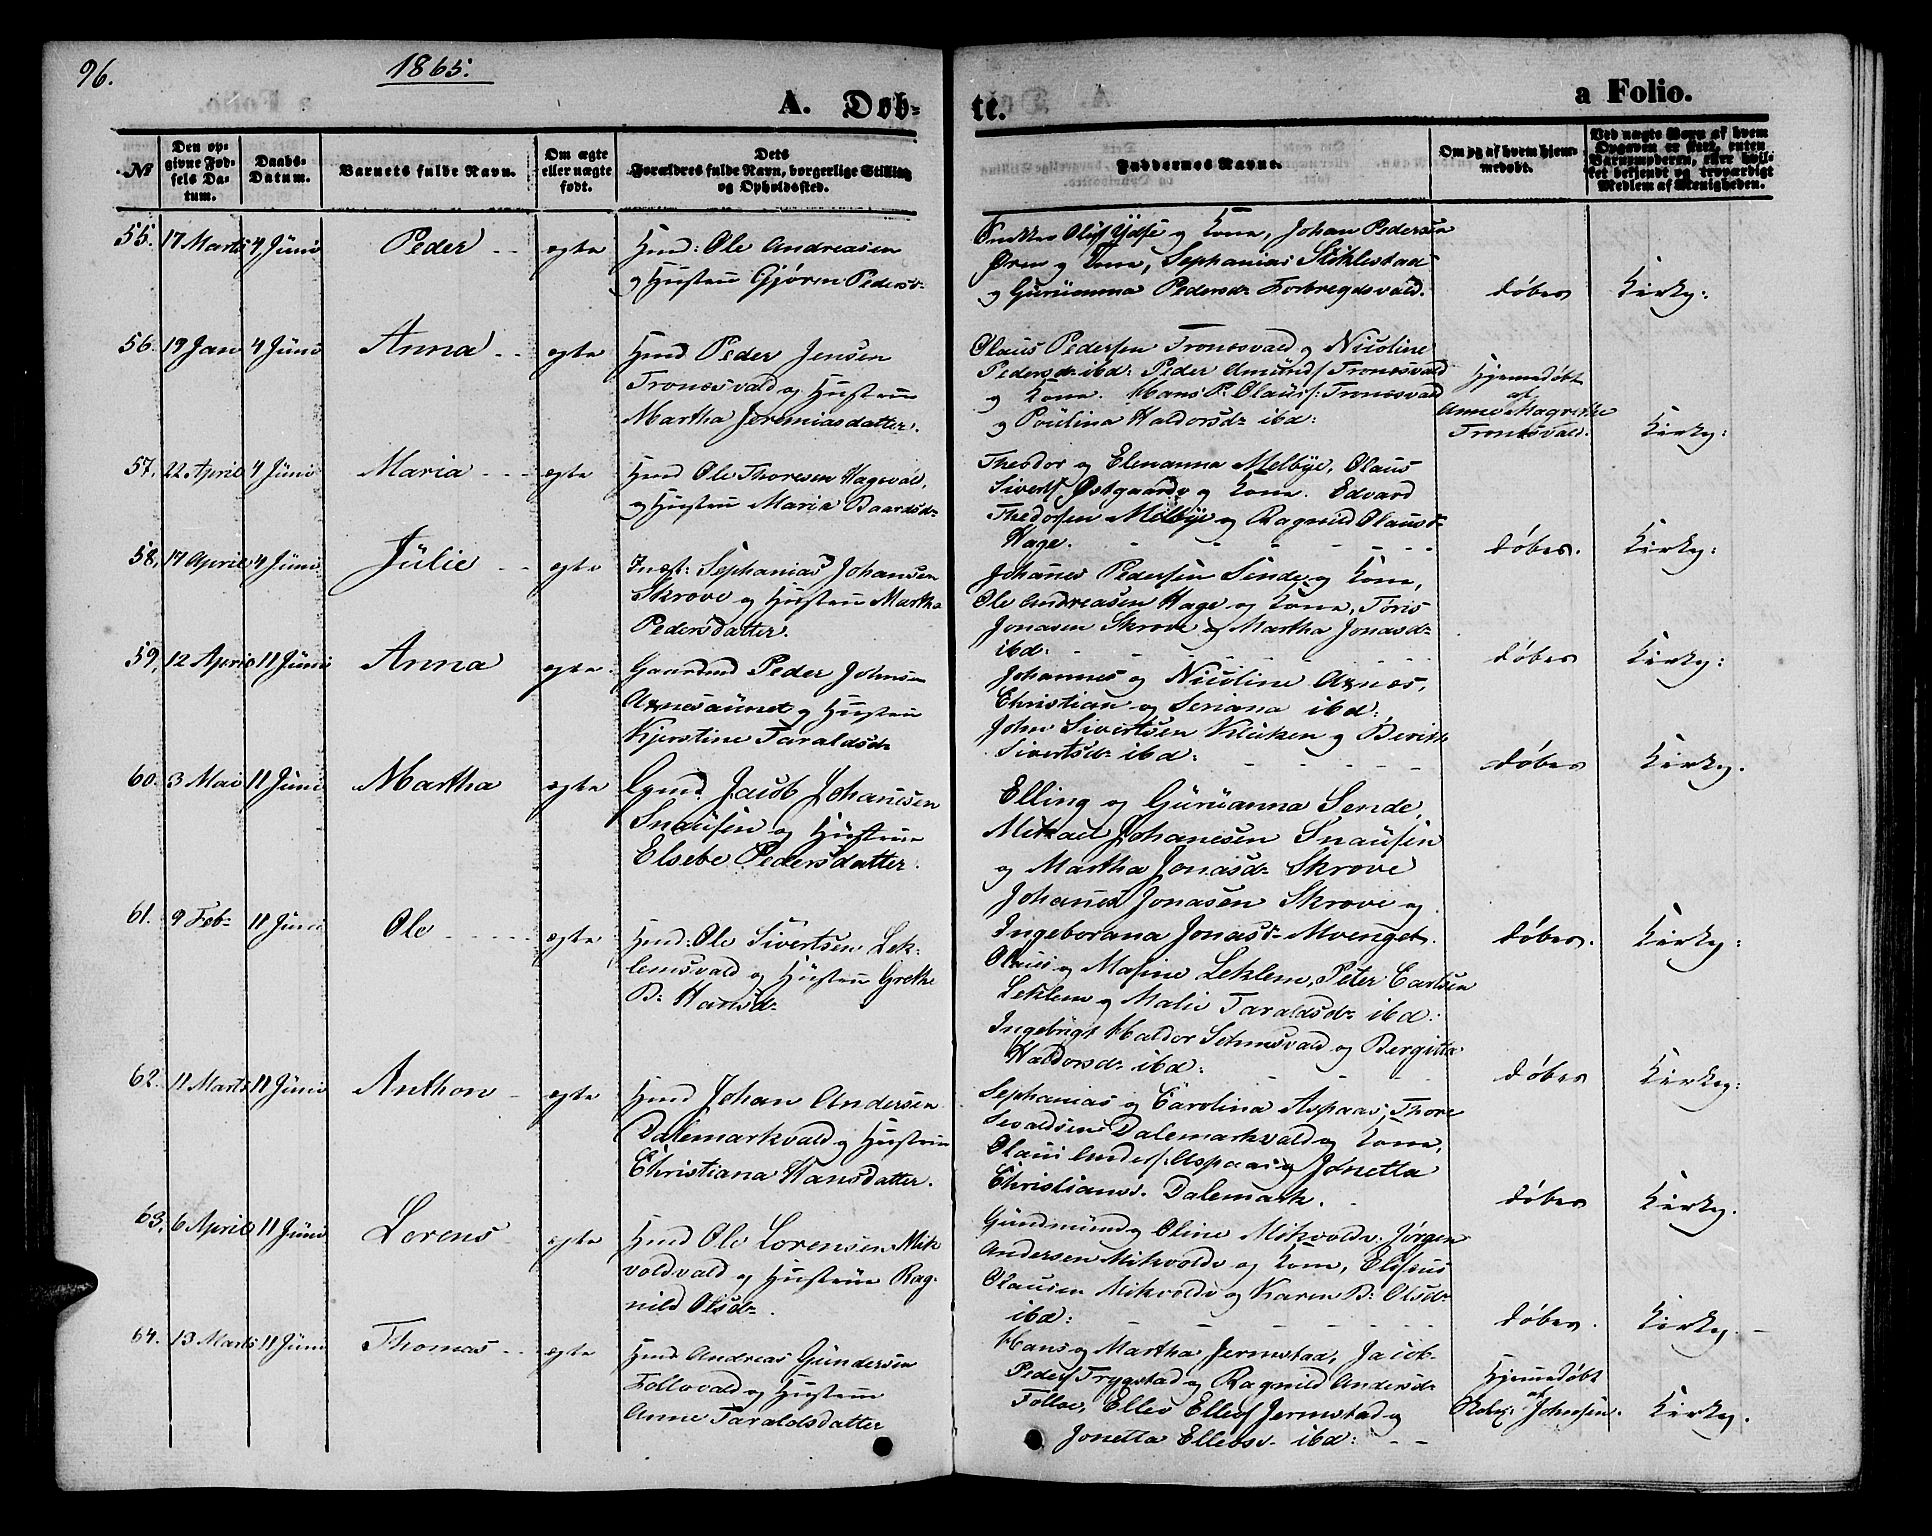 96.
1865.
A. Døb-
te.
a Folio.
№
Den op-
givne Fød-
sels Da-
tum.
Daabs-
Datum.
Barnets fulde Navn.
Om ægte
eller uægte
født.
Dets
Forældres fulde Navn, borgerlige Stilling
og Opholdssted.
Faddernes Navne.
Om og af hvem hjem-
medøbt.
Ved uægte Børn af hvem
Opgaven er skeet, enten
Barnemoderen, eller hvil-
ket bekjendt og troværdigt
Medlem af Menigheden.
55. 17 Marts 4 Jüni Peder ægte Hmd: Ole Andreasen
og Hustru Gjøren Pedersd:
Olüf Ydse og Kone, Johan Pedersen
Øren og Kone, Sephanias Stiklestad
og Gurüanna Pedersd: Forbregdsvald.
døbes Kirky:
56. 19 Jan 4 Jüni Anna ægte Hmd Peder Jensen
Tronesvald og Hustru
Martha Jeremiasdatter.
Olaus Pedersen Tronesvald og Nicoline
Pedersd: ibd: Peder Amünds Tronesvald
og Kone. Hans P. Olaüs. Tronesvald
og Poülina Haldorsd: ibd:
Hjemedøbt
af
Anne Magrethe
Tronesvald.
Kirky:
57. 22 April 4 Jüni Maria ægte Hmd Ole Thoresen Hagevald,
og Hustru Maria Baardsd:
Theodor og Elenanna Melbye, Olaus
Siverts Østgaard og Kone. Edvard
Thedorsen Melbye og Ragnild Olausd:
Hage.
døbes. Kirky:
58. 17 April 4 Jüni Jülie ægte Indst: Sephanias Johansen
Skrove og Hustru Martha
Pedersdatter.
Johanes Pedersen Sende og Kone,
Ole Andreasen Hage og Kone, Toris
Jonasen Skrove og Martha Jonasd:
ibd:
døbes Kirky:
59. 12 April 11 Jüni Anna ægte Gaardmd Peder Johnsen
Axnesaünet og Hustru
Kjerstine Taraldsd:
Johannes og Nicoline Axnes,
Christian og Seriana ibd:
John Sivertsen Kluken og Berith
Sivertsd: ibd:
døbes Kirky.
60. 3 Mai 11 Jüni Martha ægte Gmd. Jacob Johanesen
Snausen og Hustrue
Elsebe Pedersdatter.
Elling og Gürüanna Sende,
Mikael Johanesen Snaüsen
og Martha Jonasd: Skrove
Johanes Jonasen Skrove og
Ingeborana Jonasd: Mvenget.
døbes. Kirky:
61. 9 Feb: 11 Jüni Ole ægte Hmd: Ole Sivertsen Lek-
lemsvald og Hüstru Grethe
B: Hansd:
Olaus og Masine Leklem, Peter Carlsen
Leklem og Malie Taraldsd: ibd:
Ingebrigt Haldor Semsvald og Bergitta
Haldorsd: ibd:
døbes Kirky:
62. 11 Marts 11 Jüni Anthon ægte Hmd Johan Andersen
Dalemarkvald og Hustrue
Christiana Hansdatter.
Sephanias og Carolina Aspaas, Thore
Sevaldsen Dalemarkvald og Kone,
Olaus Anders. Aspaas og Jonetta
Christiansd. Dalemark.
døbes Kirky.
63. 6 April 11 Jüni Lorens ægte Hmd Ole Lorensen Mik
voldvald og Hustrüe Rag-
nild Olsd:
Gündmünd og Oline Mikvold, Jørgen
Andersen Mikvold og Kone, Elisæus
Olausen Mikvold og Karen B: Olsd:
ibd:
døbes. Kirky.
64. 13 Marts 11 Jüni Thomas ægte Hmd Andreas Gündersen
Follovald og Hustrue
Anne Taraldsdatter
Hans og Martha Jermstad, Jacob
Peders Trygstad og Ragnild Andersd:
Folloe, Ellev Ellevs Jermstad og
Jonetta Ellevsd. ibd:
Hjemedøbt
af
Johnsen.
Kirky.